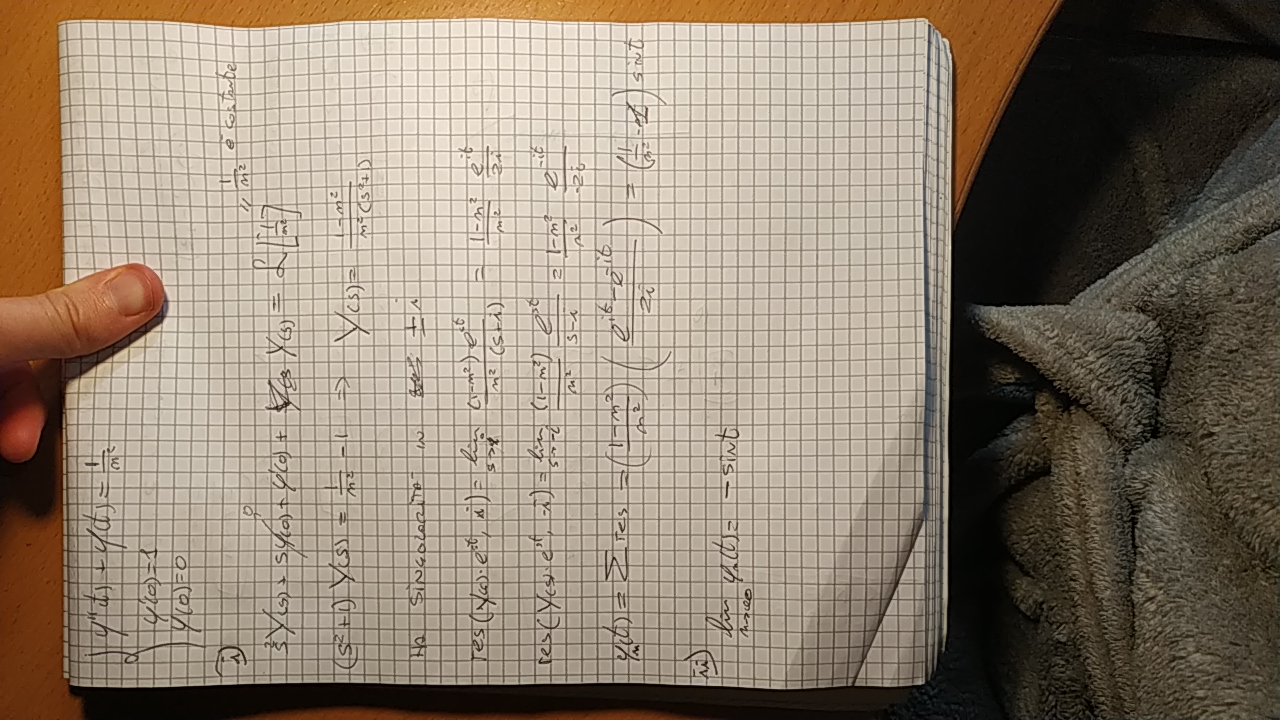 y''(t) + y(t) = 1/n²
y'(0)=1
y(0)=0
i)
1/n² è costante
s²Y(s) + sy(0) + y'(0) + Y(s) = ℒ[1/n²]
0
(s²+1) Y(s) = 1/n² - 1 ⇒ Y(s) = (1-n²)/(n²(s²+1))
Ha singolarità in ±i
res(Y(s)·e^{st}, i) = lim_{s→i} (1-n²)e^{st}/(n²(s+i)) = (1-n²)/n² e^{it}/2i
res(Y(s)·e^{st}, -i) = lim_{s→-i} (1-n²)/n² e^{st}/(s-i) = (1-n²)/n² e^{-it}/-2i
yₙ(t) = Σ res = ((1-n²)/n²) ((e^{it} - e^{-it})/2i) = (1/n² - 1) sint
ii)
lim_{n→∞} yₙ(t) = -sint